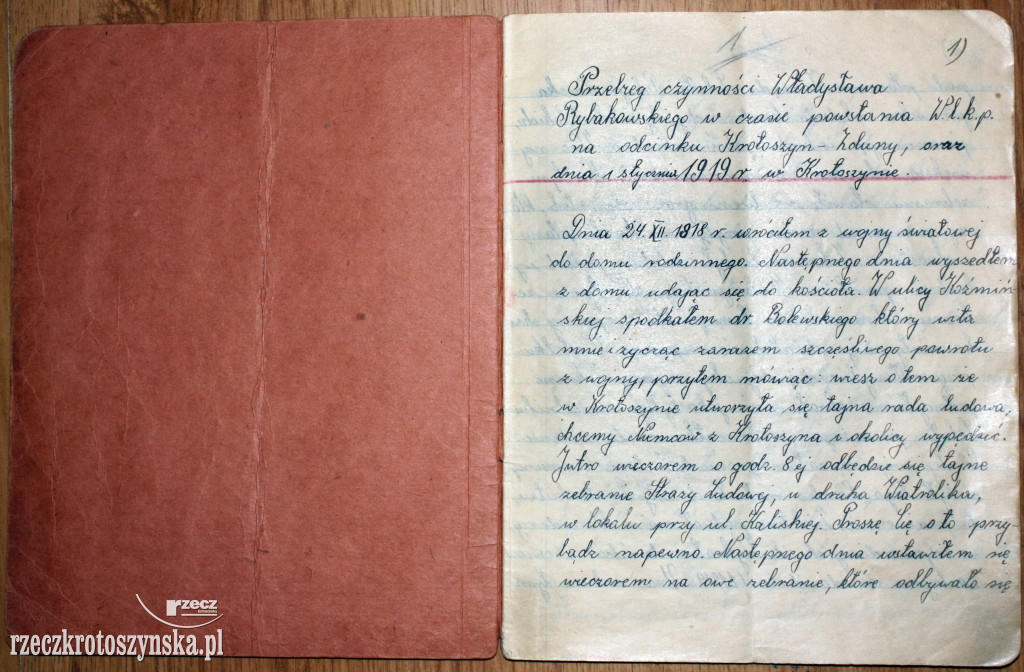 1
1)
Przebieg czynności Władysława
Rybakowskiego w czasie powstania Wl.k.p.
na odcinku Krotoszyn - Zduny, oraz
dnia 1 stycznia 1919 r. w Krotoszynie.
Dnia 24. XII 1918 r. wróciłem z wojny światowej
do domu rodzinnego. Następnego dnia wyszedłem
z domu udając się do kościoła. W ulicy Koźmiń-
skiej spodkałem dr. Bolewskiego który wita
mnie i zycząc zarazem szczęśliwego powrotu
z wojny, przytem mówiąc: wiesz o tem ze
w Krotoszynie utworzyła się tajna rada ludowa,
chcemy Niemców z Krotoszyna i okolicy wypędzić.
Jutro wieczorem o godz. 8 ej odbędzie się tajne
zebranie Straży Ludowej, u druha Wiatrolika,
w lokalu przy ul. Kaliskiej. Proszę Cię o to przy-
bądz napewno. Następnego dnia wstawiłem się
wieczorem na owe zebranie, które odbywało się
rzecz
krotoszyńska
rzeczkrotoszyńska.pl